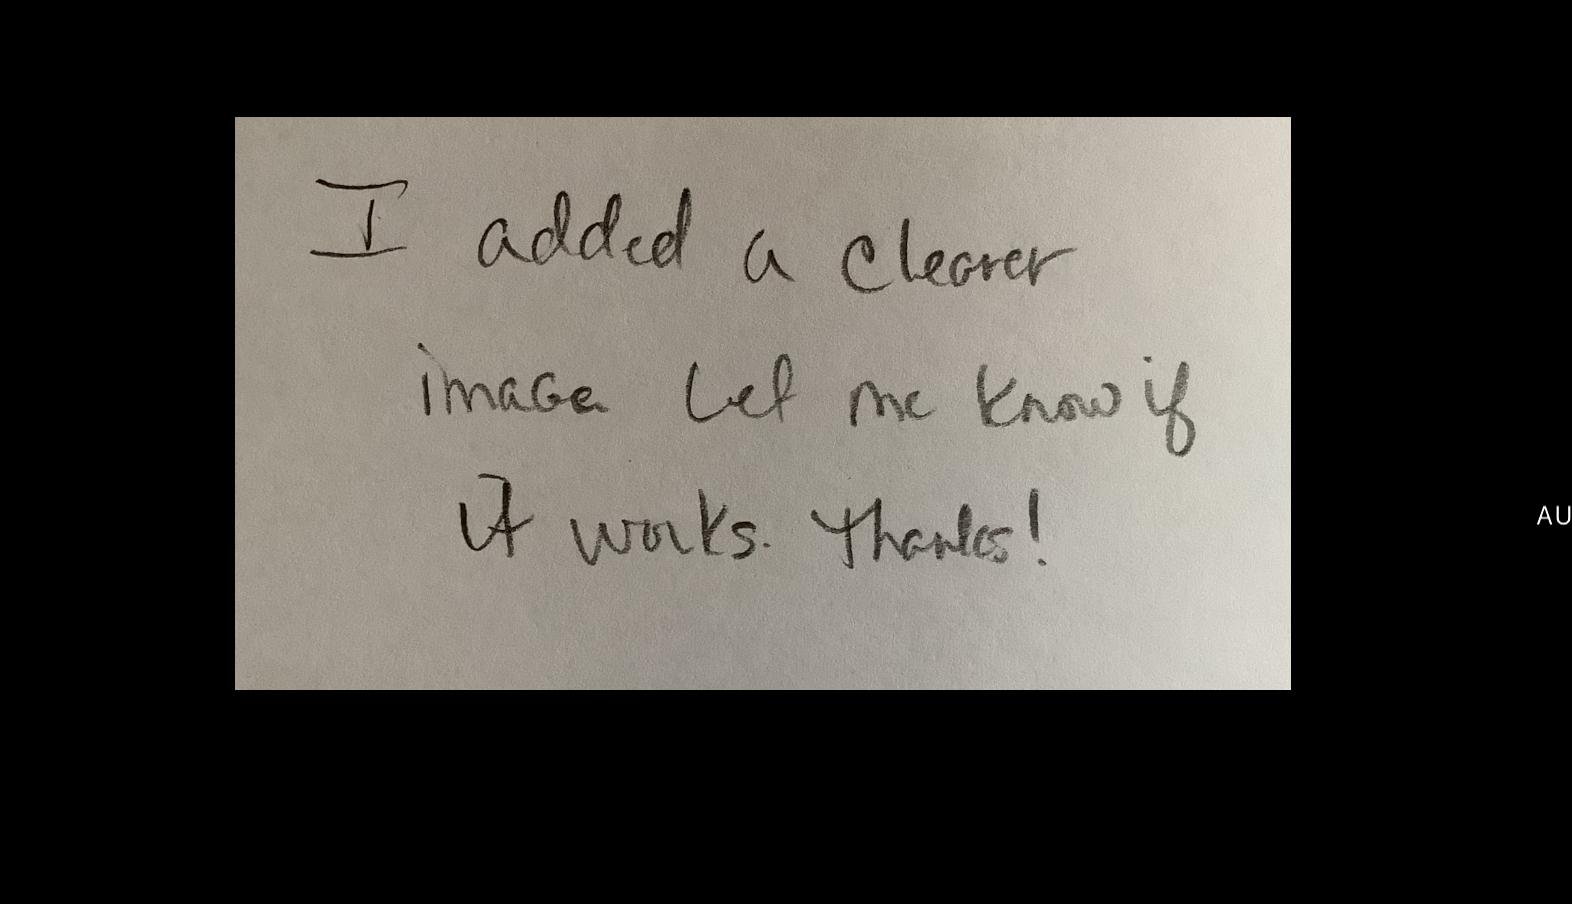 I added a clearer
image Let me know if
it works. Thanks!
AU